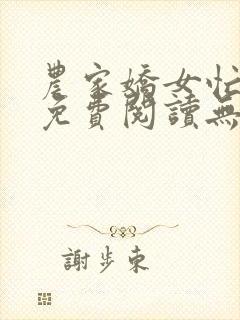 農家嬌女忙
免費閱讀無
謝步東